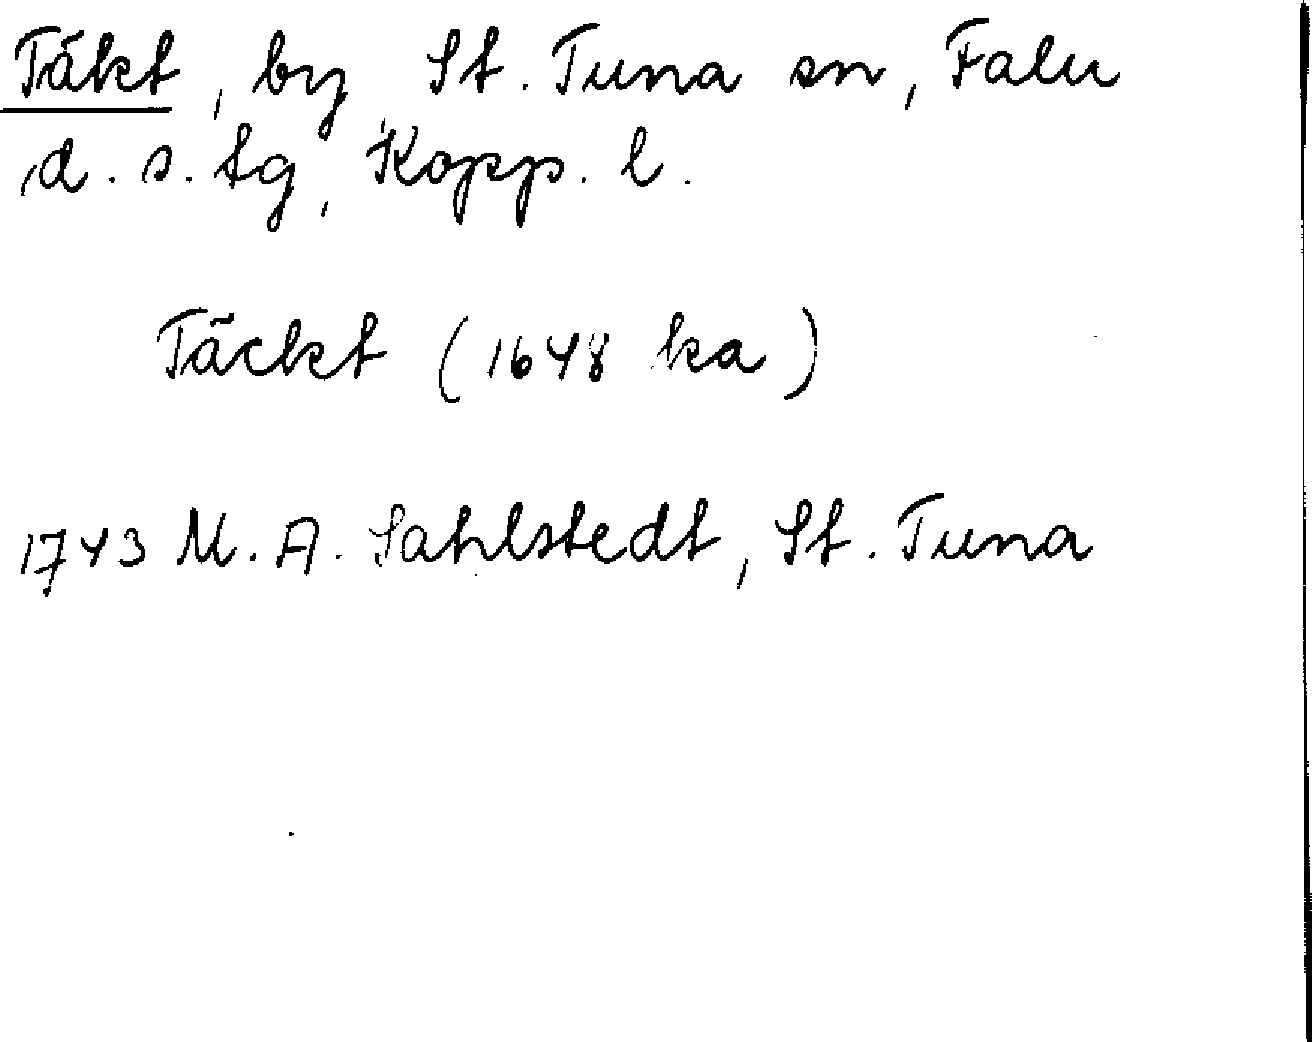 Täkt, by, St. Tuna sn, Falu
d. s. tg, Kopp. l.
Täckt (1648 ka)
1743 M. A. Sahlstedt, St. Tuna